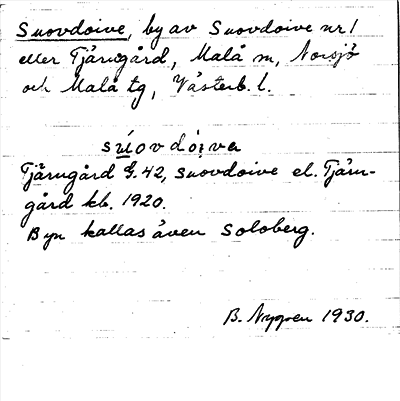 Suovdoive, by av Suovdoive nr 1
eller Tjärngård, Malå sn, Norsjö
och Malå tg, Västerb. l.
súovdói̯va
Tjärngård G. 42, Suovdoive el. Tjärn-
gård kb. 1920.
Byn kallas även Soloberg.
B. Nygren 1930.